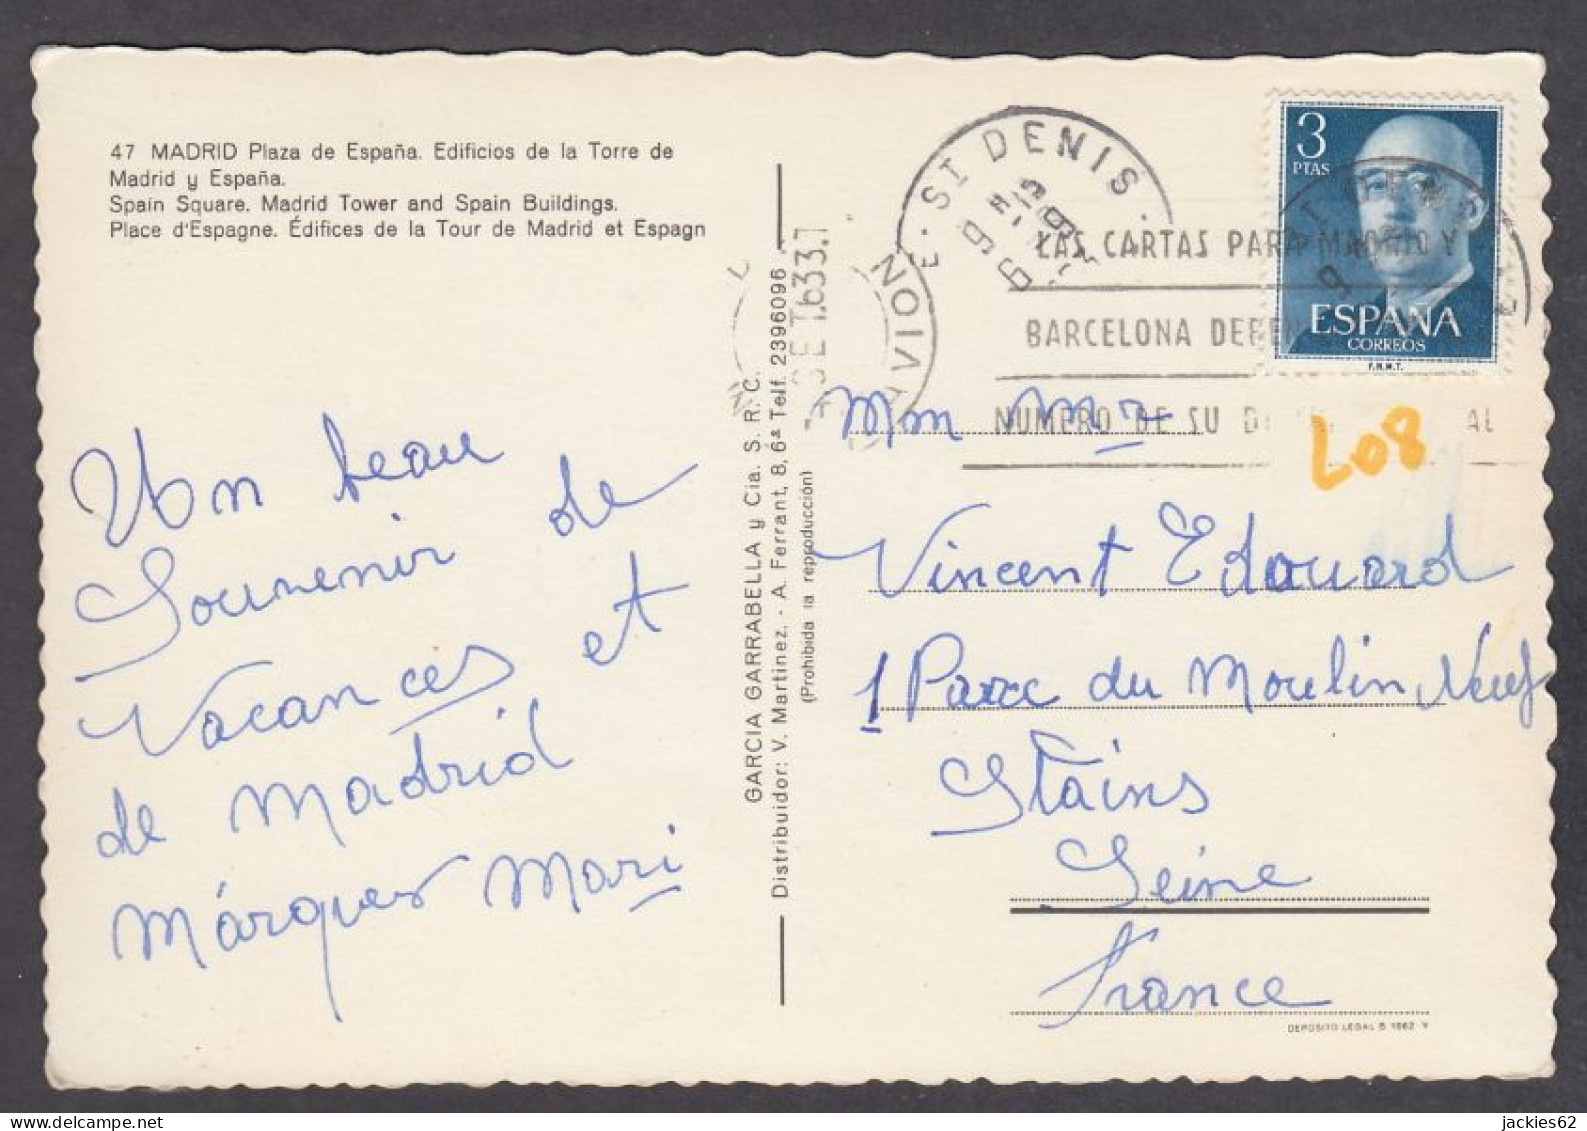 47 MADRID Plaza de España. Edificios de la Torre de
Madrid y España.
Spain Square. Madrid Tower and Spain Buildings.
Place d'Espagne. Édifices de la Tour de Madrid et Espagn
Un beau
Souvenir de
Vacances et
de Madrid
Márques Mari
GARCIA GARRABELLA y Cia. S. R. C.
Distribuidor: V. Martinez. - A. Ferrant, 8, 6ª Telf. 2396096
(Prohibida la reproducción)
ST DENIS
AVION
SET.63
LAS CARTAS PARA MADRID Y
BARCELONA DEBEN
NUMERO DE SU DI AL
3
PTAS
ESPAÑA
CORREOS
F.N.M.T.
L08
Mm Mr
Vincent Edouard
1 Parc du Moulin Neuf
Stains
Seine
France
DEPOSITO LEGAL B 1962 V
jackies62